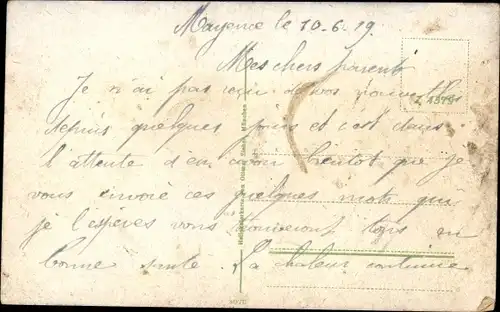 Mayence le 10-6-19
Mes chers parent
Je n'ai pas reçu de vos nouvelles
depuis quelques jours et c'est dans
l'attente d'en avoir bientot que je
vous envoie ces quelques mots qui
je l'espères vous trouveront tous en
bonne sante. La chaleur continue
Z 1979